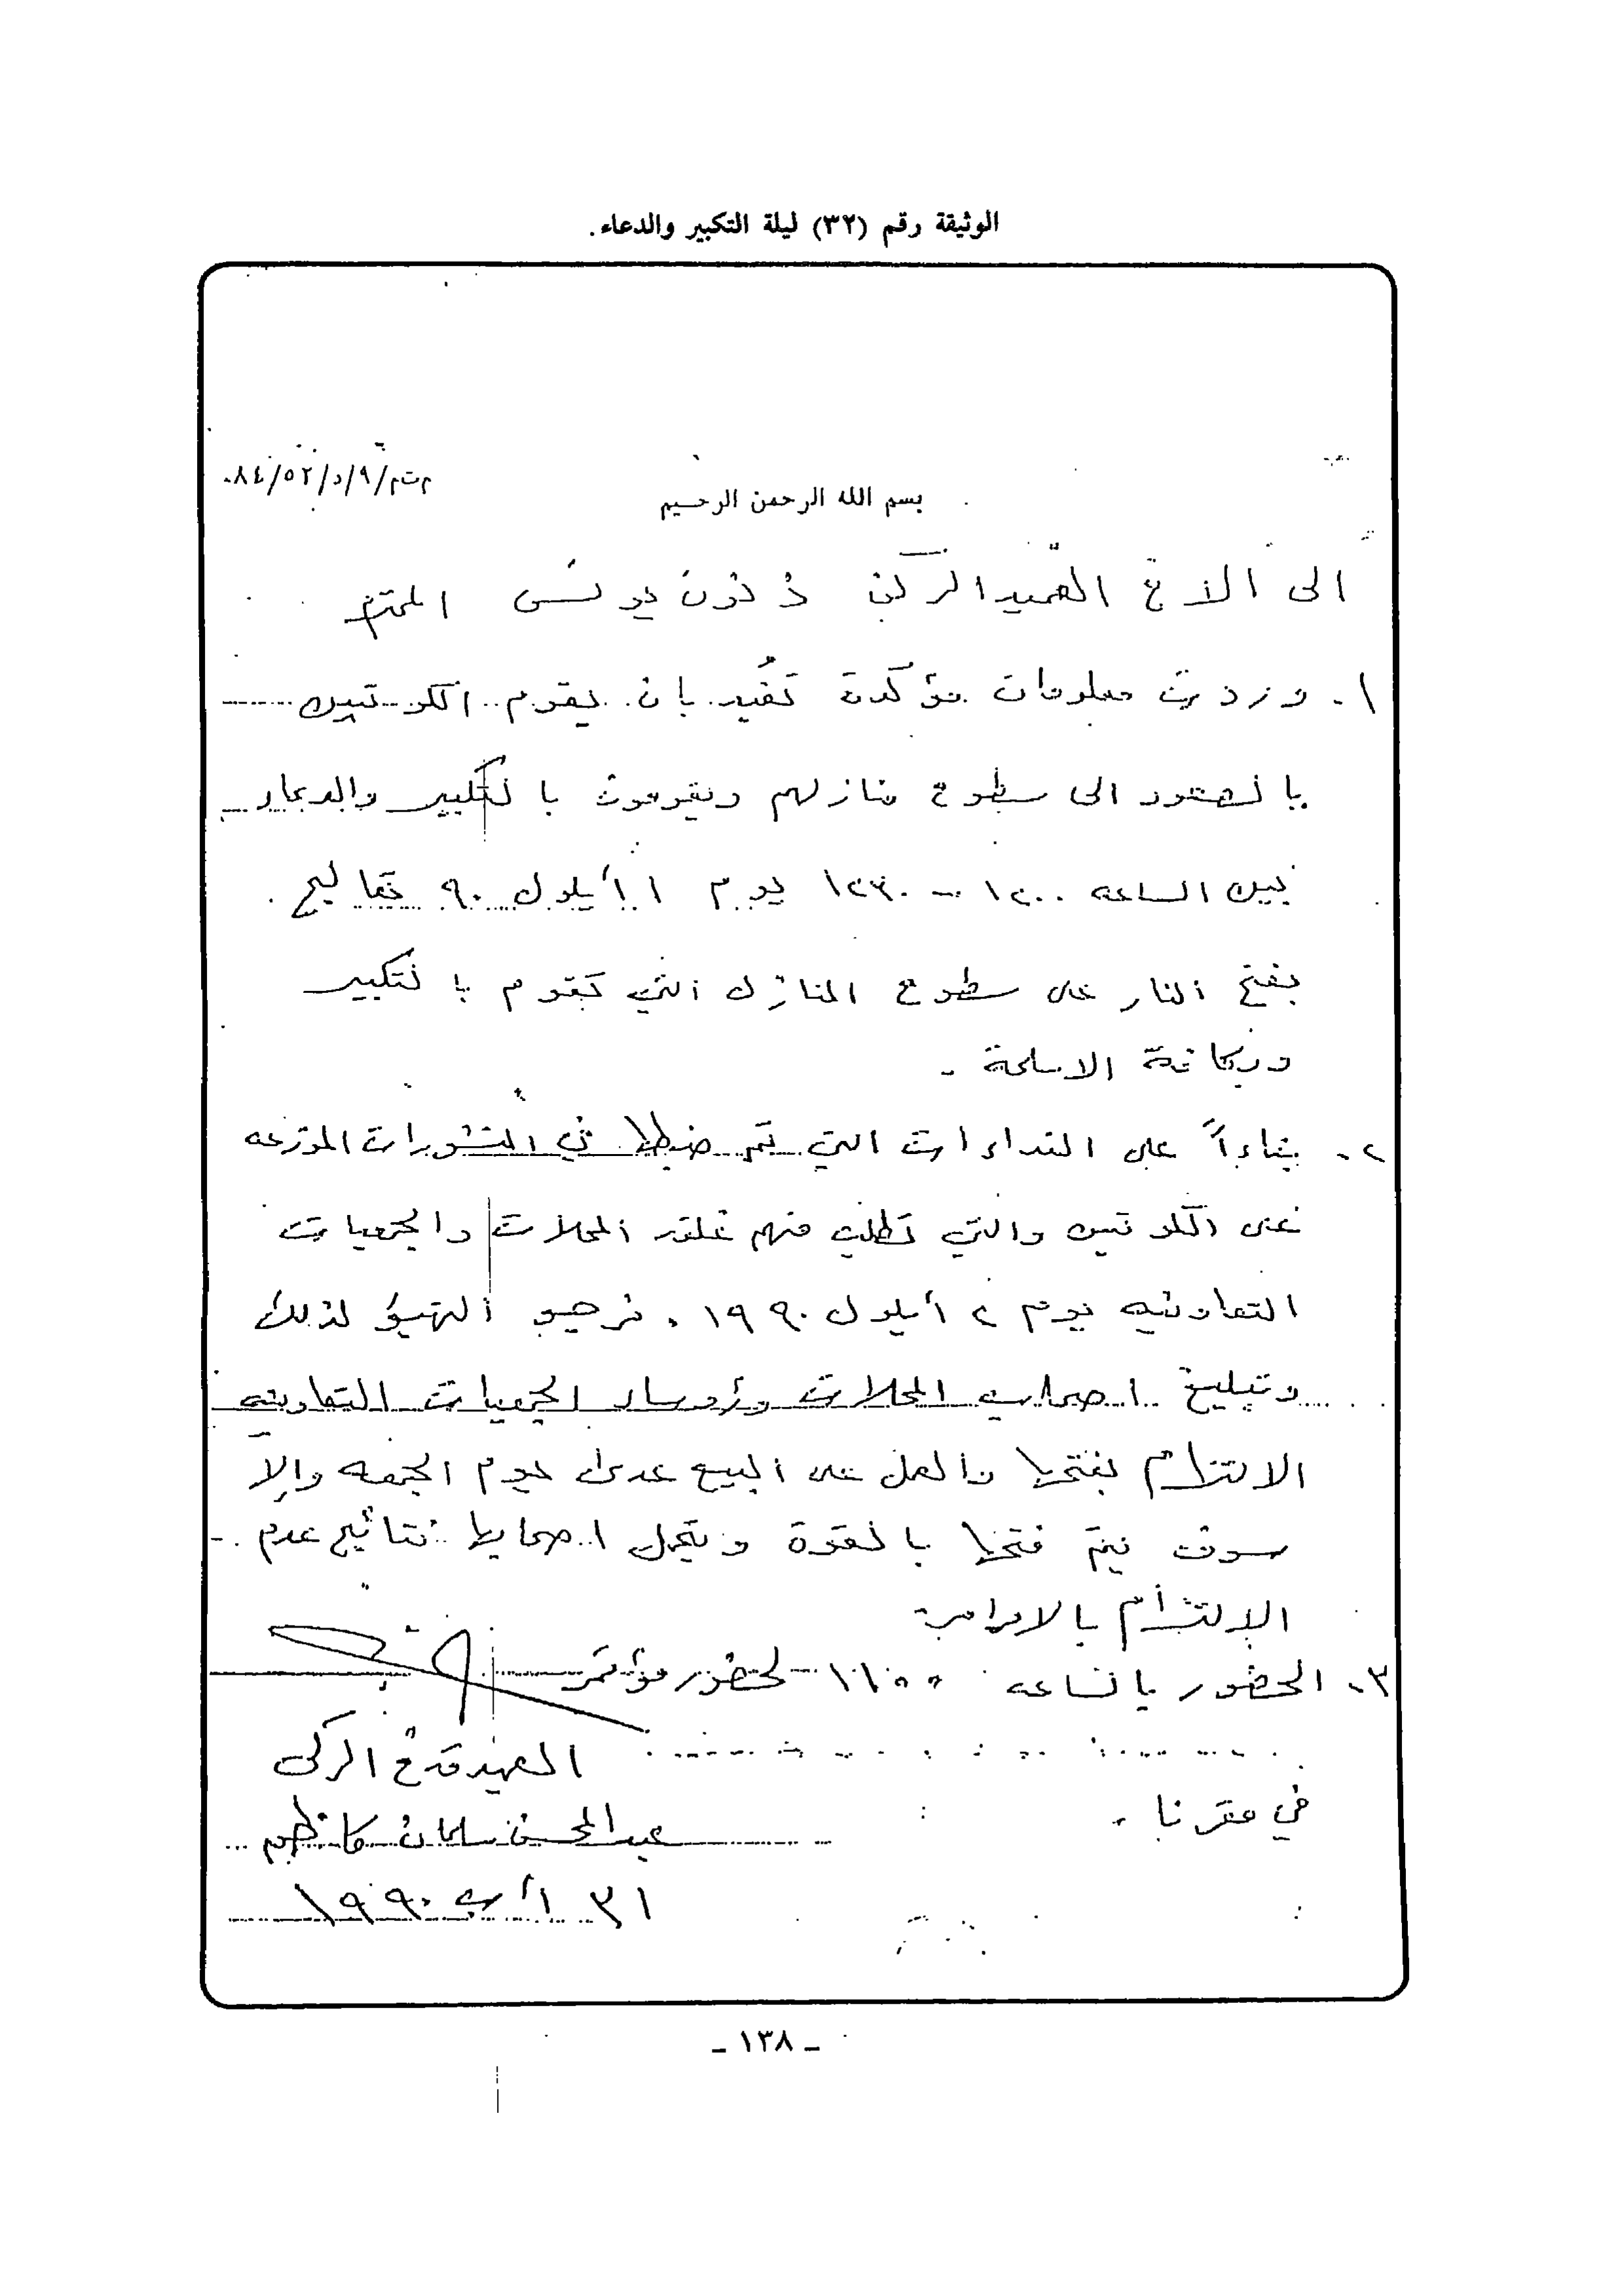 الوثيقة رقم (٣٢) ليلة التكبير والدعاء.
م ت م/٩/د/٥٢/٨٤٠
بسم الله الرحمن الرحيم
الى الاخ العميد الركن ذنون يونس المحترم
١- وردت معلومات مؤكدة تفيد بان يقوم الكويتيين
بالصعود الى سطوح منازلهم ويقومون بالتكبير والدعاء
بين الساعه ١٢٠٠ - ١٢٣٠ يوم ١ أيلول ٩٠ تعالج
بفتح النار على سطوح المنازل التي تقوم بالتكبير
وبكافة الاسلحة -
٢- بناءاً على النداءات التي تم ضبطها في المنشورات الموزعه
على الكويتيين والتي تطلب منهم غلق المحلات والجمعيات
التعاونيه يوم ٢ أيلول ١٩٩٠ . نرجو التهيؤ لذلك
وتبليغ اصحاب المحلات ورؤساء الجمعيات التعاونيه
الالتزام بفتحها والعمل على البيع عدى يوم الجمعه وإلا
سوف يتم فتحها بالقوة ويتحمل اصحابها نتائج عدم
الالتزام بالاوامر
٣- الحضور بالساعه ١١٠٠ لحضور مؤتمر
في مقرنا -
العميد الركن
عبد المحسن سلمان كاظم
٣١ أب ١٩٩٠
- ١٣٨ -